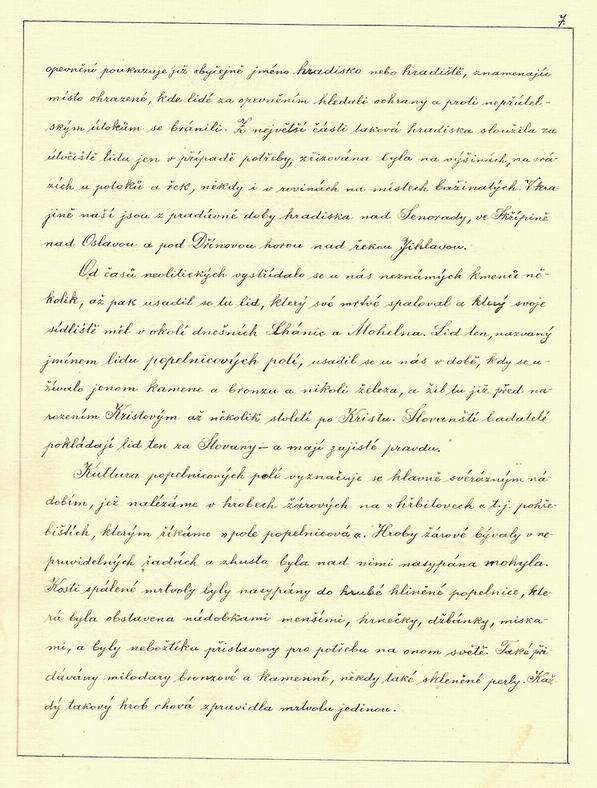 7.
opevnění poukazuje již obyčejně jméno hradisko nebo hradiště, znamenajíc
místo ohrazené, kde lidé za opevněním hledali ochrany a proti nepřátel-
ským útokům se bránili. Z největší části taková hradiska sloužila za
útočiště lidu jen v případě potřeby, zřizována byla na výšinách, na srá-
zích u potoků a řek, někdy i v rovinách na místech bažinatých. V kra-
jině naší jsou z pradávné doby hradiska nad Senorady, ve Skřípině
nad Oslavou a pod Dřínovou horou nad řekou Jihlavou.
Od časů neolitických vystřídalo se u nás neznámých kmenů ně-
kolik, až pak usadil se tu lid, který své mrtvé spaloval a který svoje
sídliště měl v okolí dnešních Lhánic a Mohelna. Lid ten, nazvaný
jménem lidu popelnicových polí, usadil se u nás v době, kdy se u-
žívalo jenom kamene a bronzu a nikoli železa, a žil tu již před na-
rozením Kristovým až několik století po Kristu. Slovanští badatelé
pokládají lid ten za Slovany – a mají zajisté pravdu.
Kultura popelnicových polí vyznačuje se hlavně svérázným ná-
dobím, jež nalézáme v hrobech žárových na »hřbitovech« t.j. pohře-
bištích, kterým říkáme »pole popelnicová«. Hroby žárové bývaly v ne-
pravidelných řadách a zhusta byla nad nimi nasypána mohyla.
Kosti spálené mrtvoly byly nasypány do hrubé hliněné popelnice, kte-
rá byla obstavena nádobkami menšími, hrnečky, džbánky, miska-
mi, a byly nebožtíku přistaveny pro potřebu na onom světě. Také při-
dávány milodary bronzové a kamenné, někdy také skleněné perly. Kaž-
dý takový hrob chová zpravidla mrtvolu jedinou.